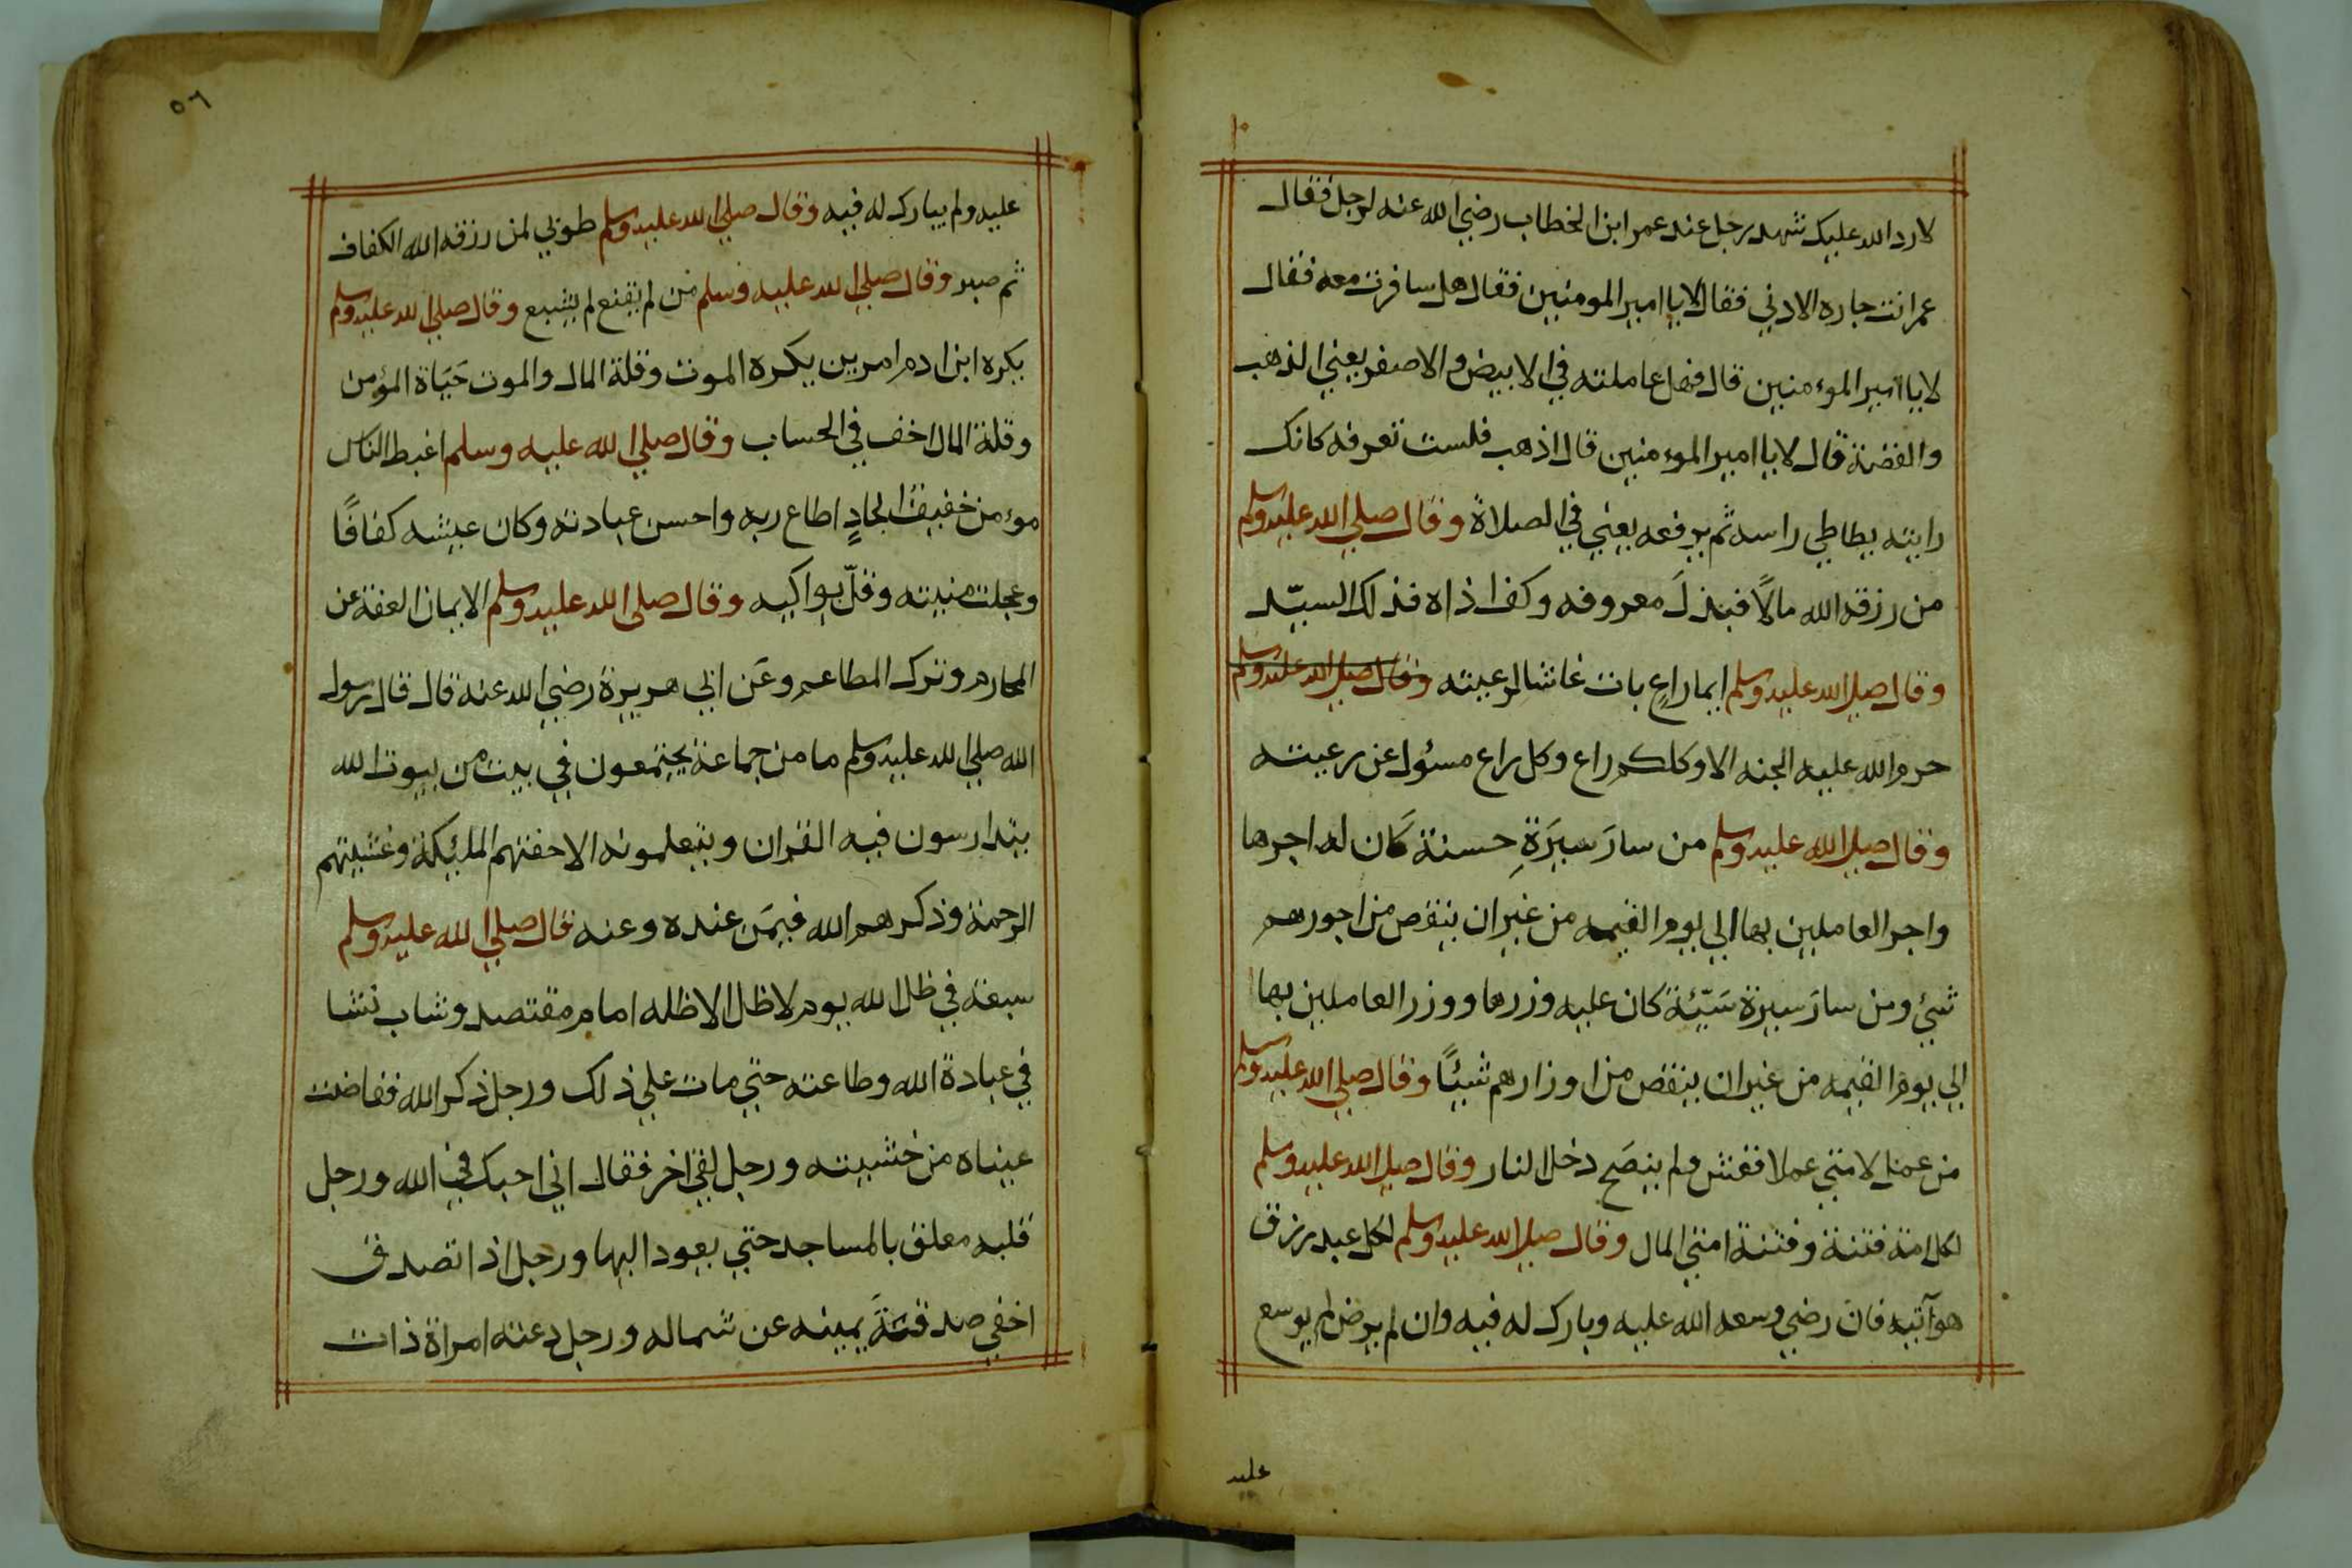 لارد الله عليك شهد رجل عند عمر ابن الخطاب رضي الله عنه لرجل فقال
عمر انت جاره الادني فقال لا يا امير المومنين فقال هل سافرت معه فقال
لا يا امير الموءمنين قال فهل عاملته في الابيض والاصفر يعني الذهب
والفضة قال لا يا امير الموءمنين قال اذهب فلست تعرفه كانك
رايته يطاطي راسه ثم يرفعه يعني في الصلاة وقال صلي الله عليه وسلم
من رزقه الله مالًا فبذلَ معروفه وكف اذاه فذلك السيّد
وقال صلي الله عليه وسلم ايما راعٍ بات غاشا لرعيته وقال صلي الله عليه وسلم
حرم الله عليه الجنه الا وكلكم راع وكل راع مسئول عن رعيته
وقال صلي الله عليه وسلم من سارَ سيرَةِ حسنة كَان له اجرها
واجر العاملين بها الي يوم القيمه من غير ان ينقص من اجورهم
شيئ ومن سارَ سيرة سَيّئة كان عليه وزرها ووزر العاملين بها
الي يوم القيمه من غير ان ينقص من اوزارهم شيئًا وقال صلي الله عليه وسلم
من عمل لامتي عملا فغش ولم ينصَح دخل النار وقال صلي الله عليه وسلم
لكل امة فتنة وفتنة امتي المال وقال صلي الله عليه وسلم لكل عبد رزق
هو آتيه فان رضي وسعه الله عليه وبارك له فيه وان لم يرض لم يوسع
عليه
٥٦
عليه ولم يبارك له فيه وقال صلي الله عليه وسلم طوبي لمن رزقه الله الكفاف
ثم صبر وقال صلي الله عليه وسلم من لم يقنع لم يشبع وقال صلي الله عليه وسلم
يكره ابن ادم امرين يكره الموت وقلة المال والموت حَيَاة المؤمن
وقلة المال اخف في الحساب وقال صلي الله عليه وسلم اغبط الناس
موءمن خفيف الحاذٍ اطاع ربه واحسن عبادته وكان عيشه كفافًا
وعجلت منيته وقلّ بواكيه وقال صلي الله عليه وسلم الايمان العفة عن
المحارم وترك المطاعم وعَن ابي هريرة رضي الله عنه قال قال رسول
الله صلي الله عليه وسلم ما من جماعة يجتمعون في بيت من بيوت الله
يتدارسون فيه القران ويتعلمونه الا حفتهم المليكة وغشيتهم
الرحمة وذكرهم الله فيمَن عنده وعنه قال صلي الله عليه وسلم
سبعة في ظل الله يوم لا ظل الا ظله امام مقتصد وشاب نشا
في عبادة الله وطاعته حتي مات علي ذلك ورجل ذكر الله ففاضت
عيناه من خشيته ورجل لقي اخر فقال اني احبك في الله ورجل
قلبه معلق بالمساجد حتي يعود اليها ورجل اذا تصدق
اخفي صدقتةَ يمينه عن شماله ورجل دعته امراة ذات